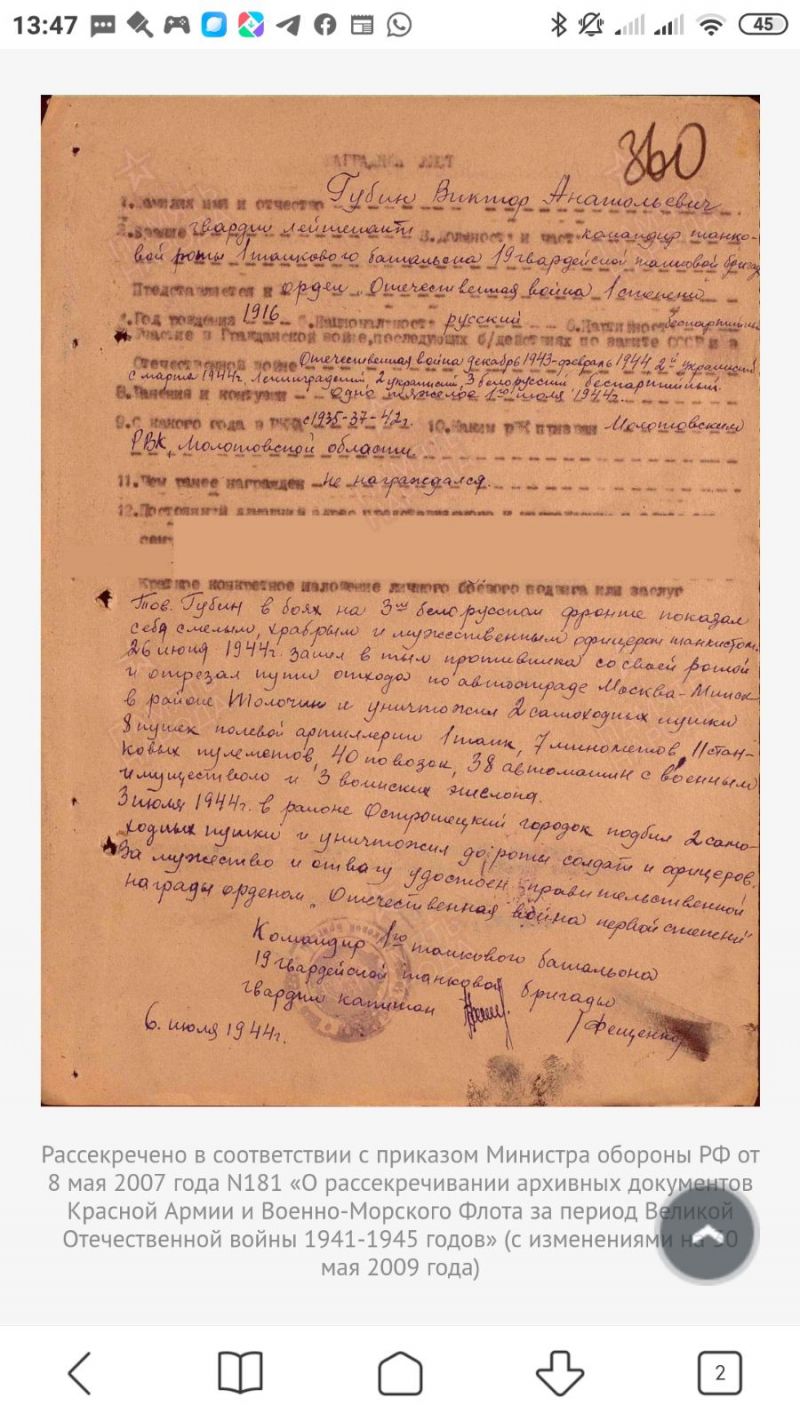 13:47
45
360
НАГРАДНОЙ ЛИСТ
1.Фамилия имя и отчество Губин Виктор Анатольевич
2.Звание гвардии лейтенант 3.Должность и часть командир танко-
вой роты 1 танкового батальона 19 гвардейской танковой бригады
Представляется к орден "Отечественная война 1 степени
4.Год рождения 1916 5.Национальность русский 6.Партийность беспартийный
7.Участие в Гражданской войне, последующих б/действиях по защите СССР и в
Отечественной войне Отечественная война декабрь 1943-февраль 1944 2й украинский
с марта 1944г. Ленинградский, 2 украинский, 3 белорусский, беспартийный.
8.Ранения и контузии одно тяжелое 1го июля 1944г.
9.С какого года в РККА с 1935-37-42г. 10.Каким РВК призван Молотовским
РВК, Молотовской области.
11.Чем ранее награжден не награждался.
12.Постоянный домашний адрес представляемого к награждению и адрес его
семьи
Краткое конкретное изложение личного боевого подвига или заслуг
Тов. Губин в боях на 3ем белорусском фронте показал
себя смелым, храбрым и мужественным офицером танкистом.
26 июня 1944г. зашел в тыл противника со своей ротой
и отрезал пути отхода по автостраде Москва-Минск
в районе Толочин и уничтожил 2 самоходных пушки
8 пушек полевой артиллерии 1 танк, 7 минометов, 11 стан-
ковых пулеметов, 40 повозок, 38 автомашин с военным
имуществом и 3 воинских эшелона.
3 июля 1944г. в районе Острошецкий городок подбил 2 само-
ходных пушки и уничтожил до роты солдат и офицеров.
За мужество и отвагу удостоен правительственной
награды орденом "Отечественная война первой степени"
Командир 1го танкового батальона
19 гвардейской танковой бригады
гвардии капитан /Фещенко
6. июля 1944г.
Рассекречено в соответствии с приказом Министра обороны РФ от
8 мая 2007 года N181 «О рассекречивании архивных документов
Красной Армии и Военно-Морского Флота за период Великой
Отечественной войны 1941-1945 годов» (с изменениями на 30
мая 2009 года)
2